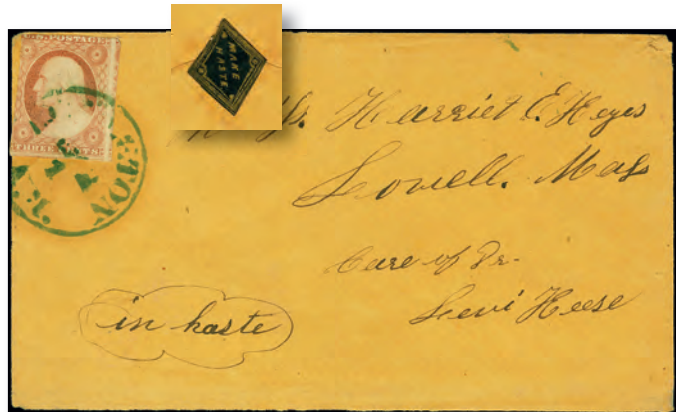 U.S. POSTAGE
THREE CENTS
MAKE
HASTE
Harriet E. Heyes
Lowell. Mass
Care of Dr.
Levi Heese
in haste